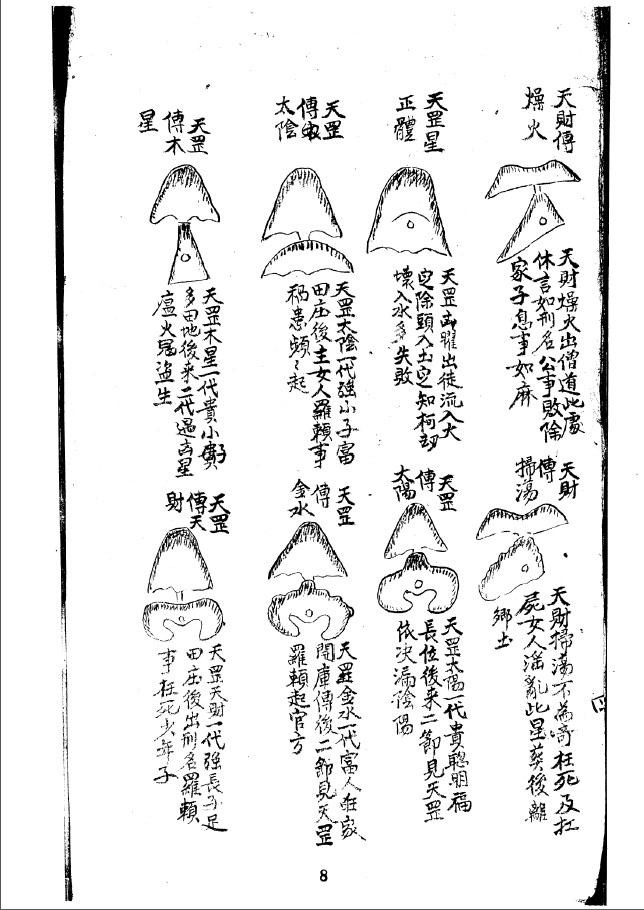 天財傳
燥火
天財燥火出僧道此處
休言如刑名公事敗除
家子息事如麻
天罡星
正體
天罡出曜出徒流入大
定除頭入土定知柯劫
壞入水多失敗
天罡
傳
太陰
天罡太陰一代強小子富
田庄後主女人羅賴事
禍患頻々起
天罡
傳木
星
天罡木星一代貴小貴子
多田地後來二代過吉星
瘟火冤盜生
天財
傳
掃蕩
天財掃蕩不為奇枉死及扛
屍女人淫亂此星葬後離
鄉土
天罡
傳
太陽
天罡太陽一代貴聰明福
長位後來二節見天罡
依決漏陰陽
天罡
傳
金水
天罡金水一代富人在家
開庫傳後二節見天罡
羅賴起官方
天罡
傳天
財
天罡天財一代強長子足
田庄後出刑名羅賴
事枉死少年子
8